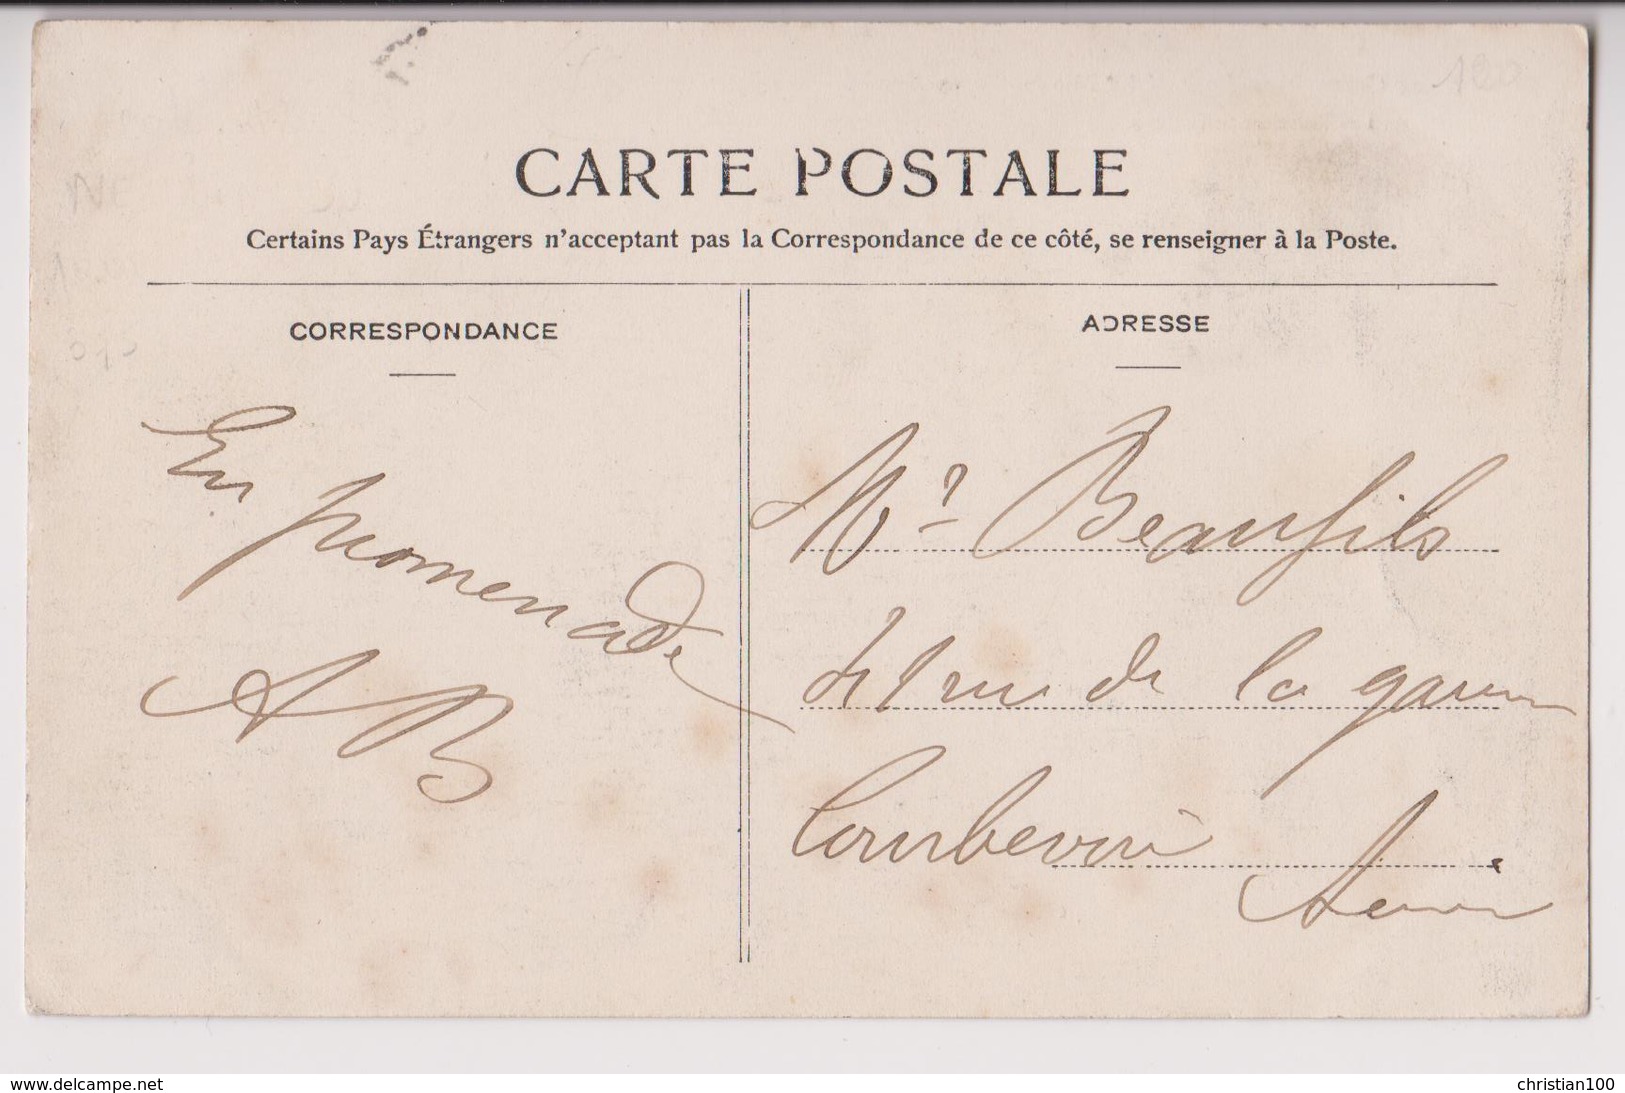 CARTE POSTALE
Certains Pays Étrangers n'acceptant pas la Correspondance de ce côté, se renseigner à la Poste.
CORRESPONDANCE
ADRESSE
En promenade
AB
Mr Beaufils
rue de la garenne
Courbevoie
Seine
www.delcampe.net
christian100